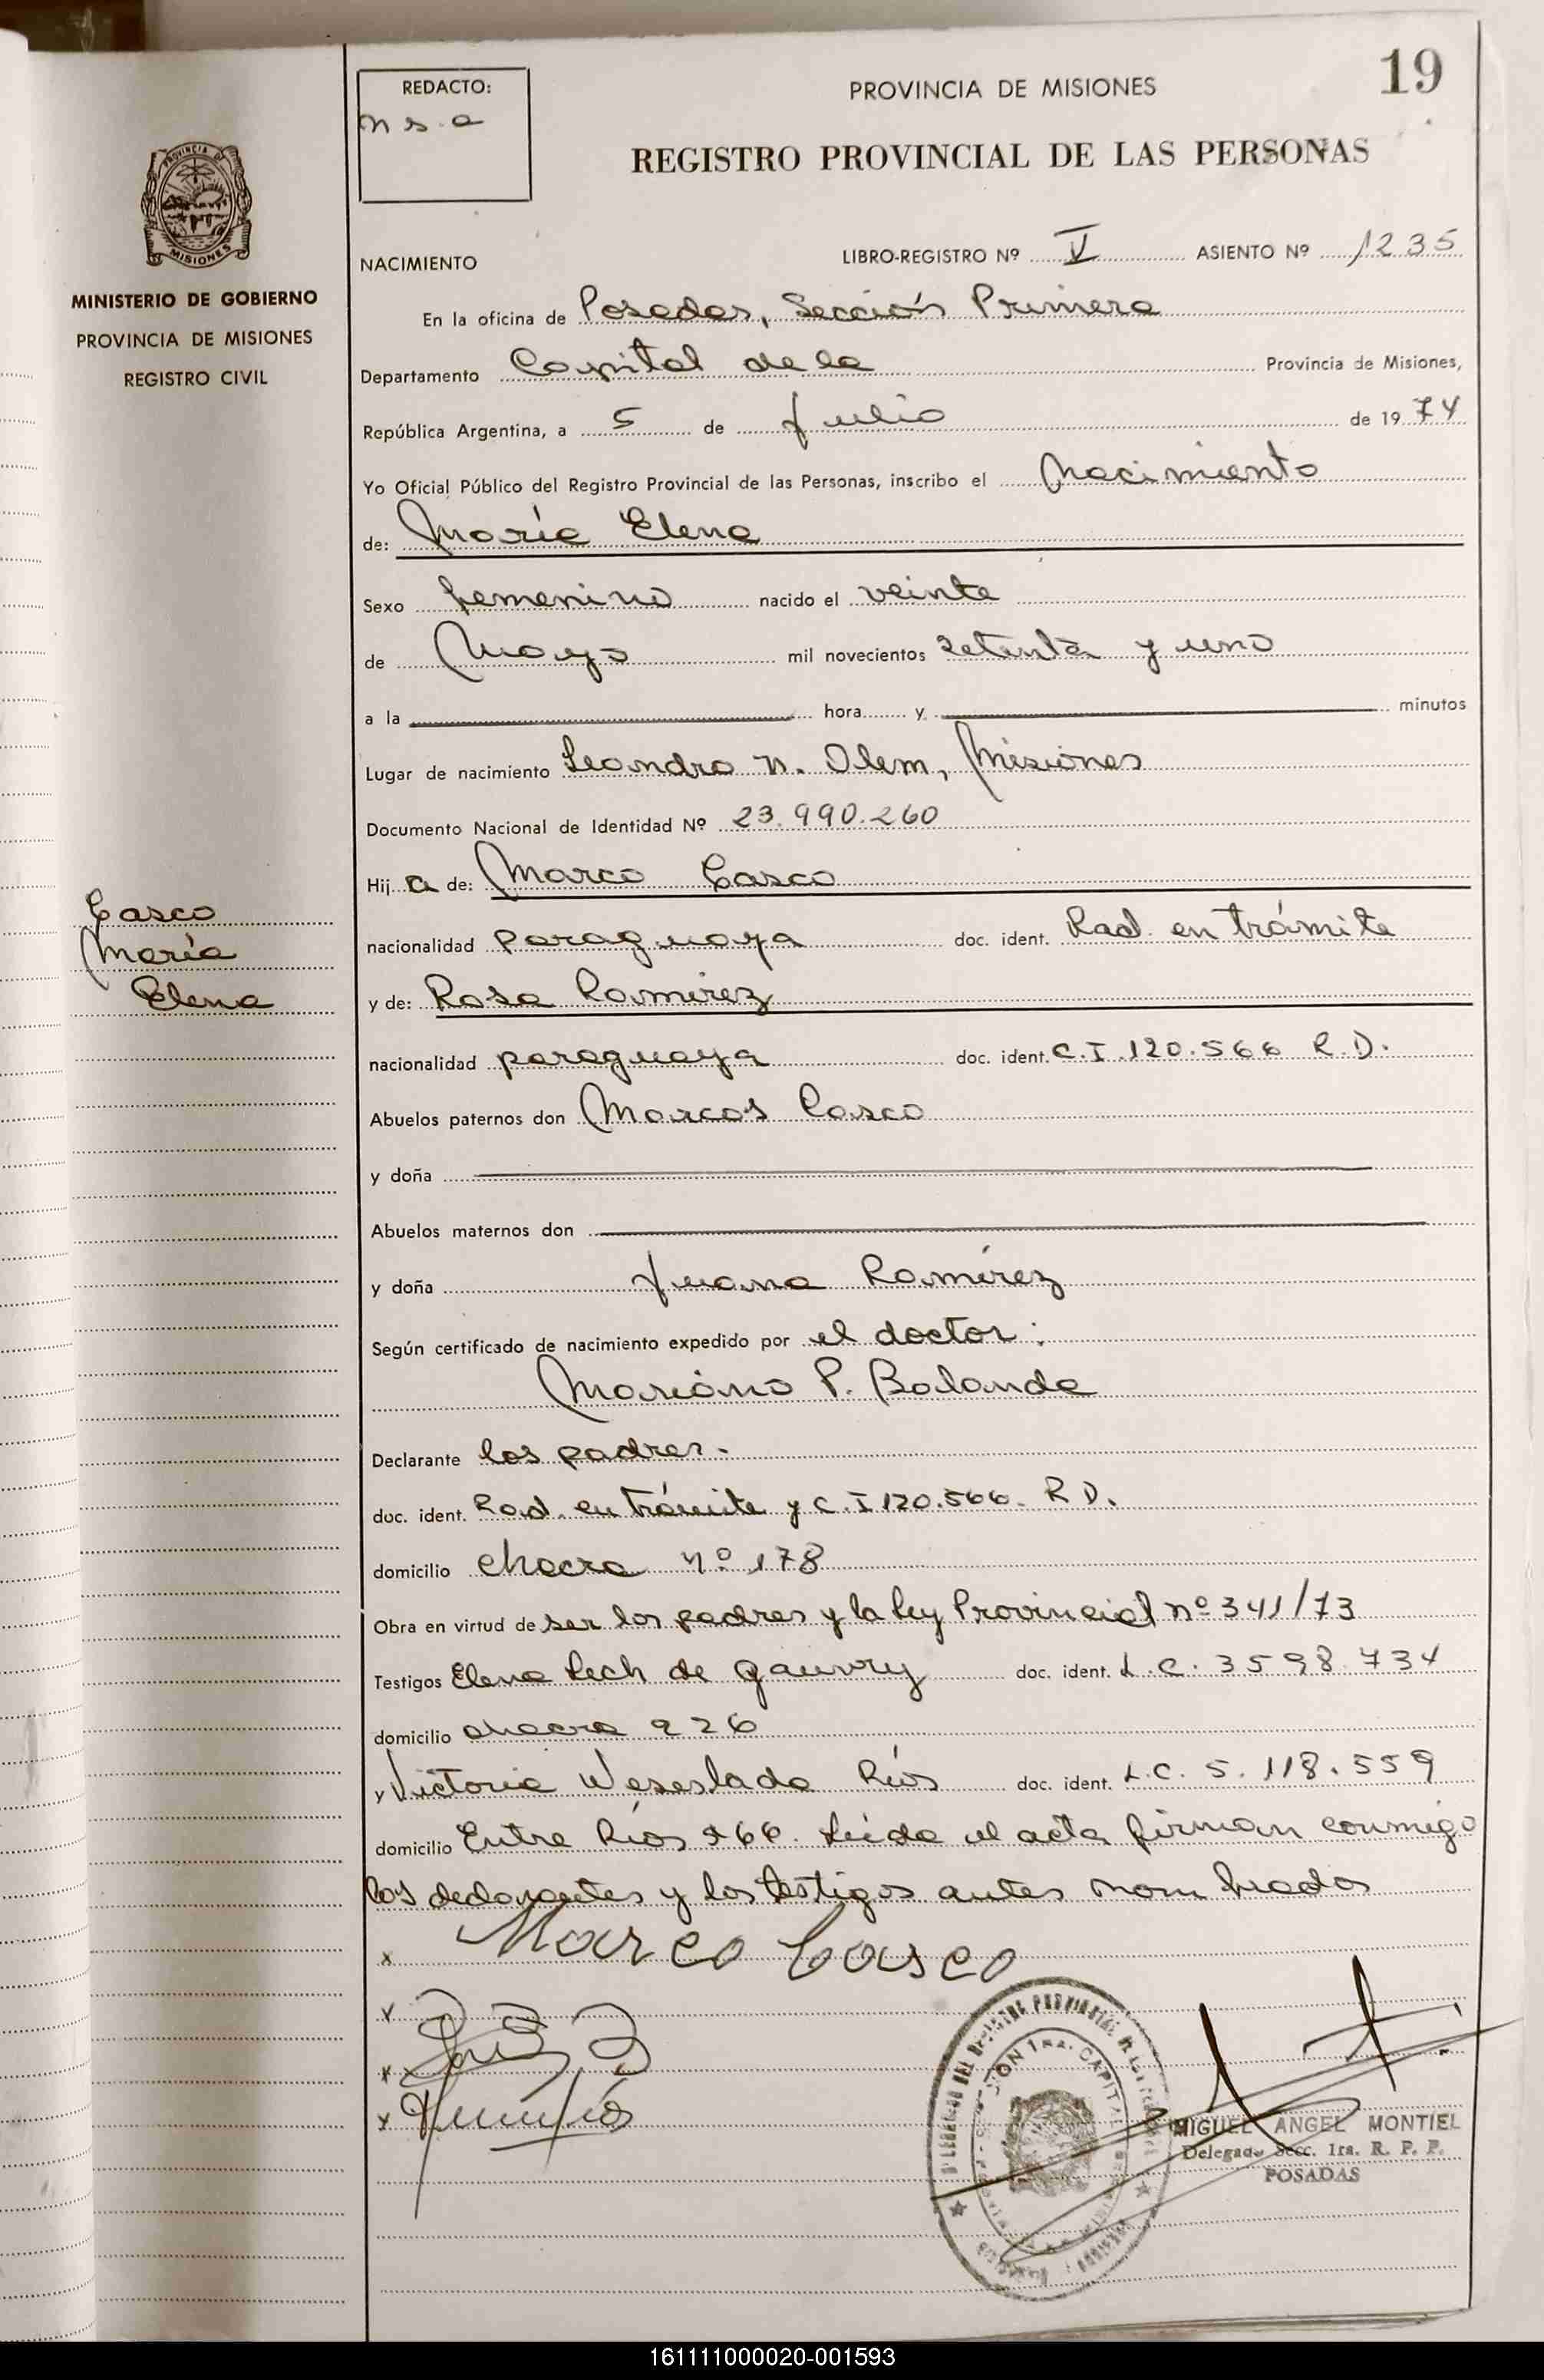 19
REDACTO:
n s. a
PROVINCIA DE MISIONES
REGISTRO PROVINCIAL DE LAS PERSONAS
PROVINCIA DE
MISIONES
MINISTERIO DE GOBIERNO
PROVINCIA DE MISIONES
REGISTRO CIVIL
NACIMIENTO LIBRO-REGISTRO Nº V ASIENTO Nº 1235
En la oficina de Posadas, Sección Primera
Departamento Capital de la Provincia de Misiones,
República Argentina, a 5 de Julio de 1974
Yo Oficial Público del Registro Provincial de las Personas, inscribo el Nacimiento
de: María Elena
Sexo femenino nacido el veinte
de Mayo mil novecientos setenta y uno
a la hora y minutos
Lugar de nacimiento Leandro N. Alem, Misiones
Documento Nacional de Identidad Nº 23.990.260
Hija de: Marco Casco
Casco
María
Elena
nacionalidad paraguaya doc. ident. Rad. en trámite
y de: Rosa Ramírez
nacionalidad paraguaya doc. ident. C.I. 120.566 R.D.
Abuelos paternos don Marcos Casco
y doña
Abuelos maternos don
y doña Juana Ramírez
Según certificado de nacimiento expedido por el doctor:
Mariano P. Balanda
Declarante los padres.
doc. ident. Rad. en trámite y C.I 120.566. R D.
domicilio chacra nº 178
Obra en virtud de ser los padres y la ley Provincial nº 341/73
Testigos Elena Lech de Gauvry doc. ident. L.C. 3598.734
domicilio chacra 226
y Victoria Weseslada Ríos doc. ident. L.C. 5.118.559
domicilio Entre Ríos 266. Leída el acta firman conmigo
los declarantes y los testigos antes nombrados
x Marco Casco
x
x
x
MIGUEL ANGEL MONTIEL
Delegado Secc. 1ra. R. P. P.
POSADAS
161111000020-001593